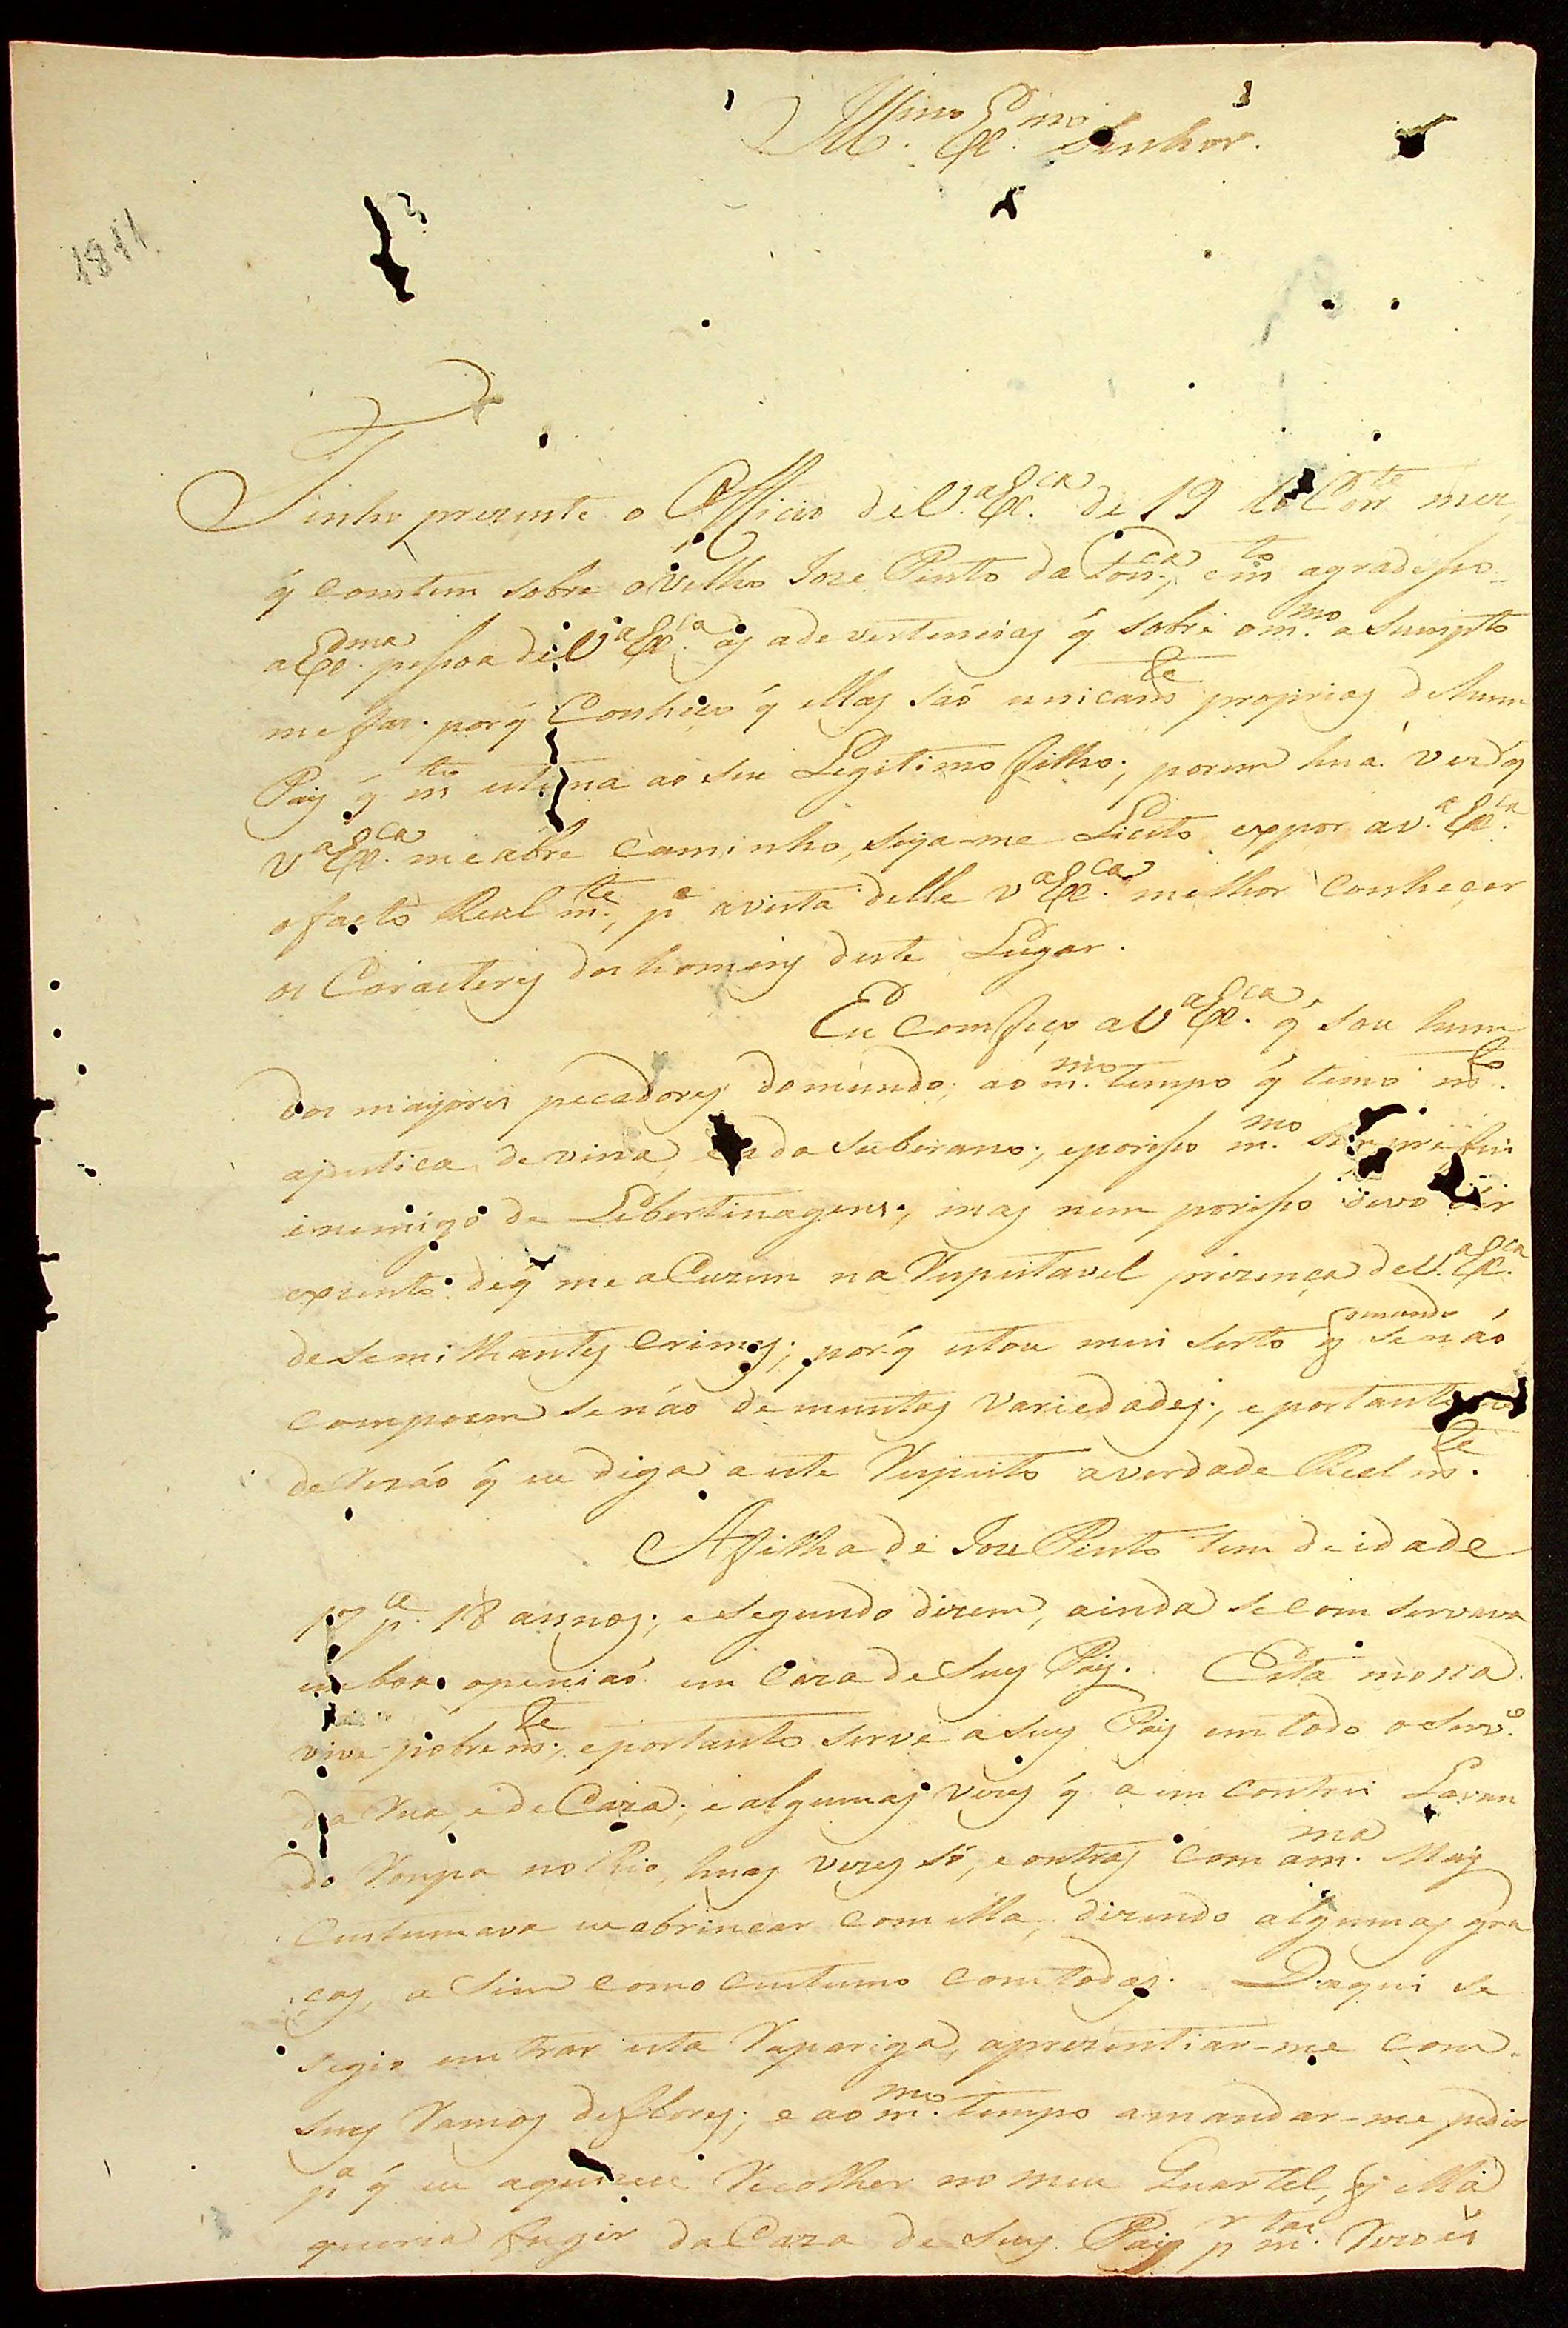 Ill.mo Ex.mo Senhor.
1811
Tenho prezente o Officio de V.a Ex.ca de 19 do Corr.te mez,
q̃ comtem sobre o velho Joze Pinto da Fon.ca, e m.to agradesso
a Ex.ma pessoa de V.a Ex.ca as adevertencias q̃ sobre o m.mo asumpto
me faz. porq̃ Conheço q̃ ellas saõ unicam.te proprias de hum
Pay q̃ m.to estima ao seu Legitimo filho; porem huá vez q̃
V.a Ex.ca me abre caminho, seja-me Licito expor a V.a Ex.ca
o facto Real m.te, p.a a vista delle V.a Ex.ca melhor Conheçer
os Caracteres dos homens deste Lugar.
Eu comfeço a V.a Ex.ca q̃ sou hum
dos mayores pecadores do mundo; ao m.mo tempo q̃ temo m.to
ajustica devina, e a do Suberano; eporisso m.mo sempre fui
enemigo de Lebertinagens; mas nem porisso devo
exzento de q̃ me aCuzem na Respeitavel prezença de V.a Ex.ca
de semilhantes Crimes; porq̃ estou mui serto q̃ omundo senáo
compoem senáo de muntas Variedades; e portanto
q̃ eu diga a este Respeito averdade Real m.te
Afilha de Joze Pinto tem de idade
17 p.a 18 annos; e segundo dizem, ainda se com servava
em boa openiaó em Caza de Seus Pais. Esta mossa
vive pobrem.te, eportanto serve a seus Pais em todo o serv.o
da Rua, e de Caza; e algumas vezes q̃ a em contrei Lavan
do Roupa no Rio, huas vezes só, e outras com a m.ma May
Custumava eu abrincar com ella, dizendo algumas gra
ças, a Sim como custumo com todas. Daqui se
segio em trar esta Rapariga, aprezentiar-me com
seus Ramos de flores; e ao m.mo tempo amandar-me pedir
p.a q̃ eu aquizece Recolher no meu Quartel, q̃ ella
queria fugir da Caza de Seus Pais p.r m.tas